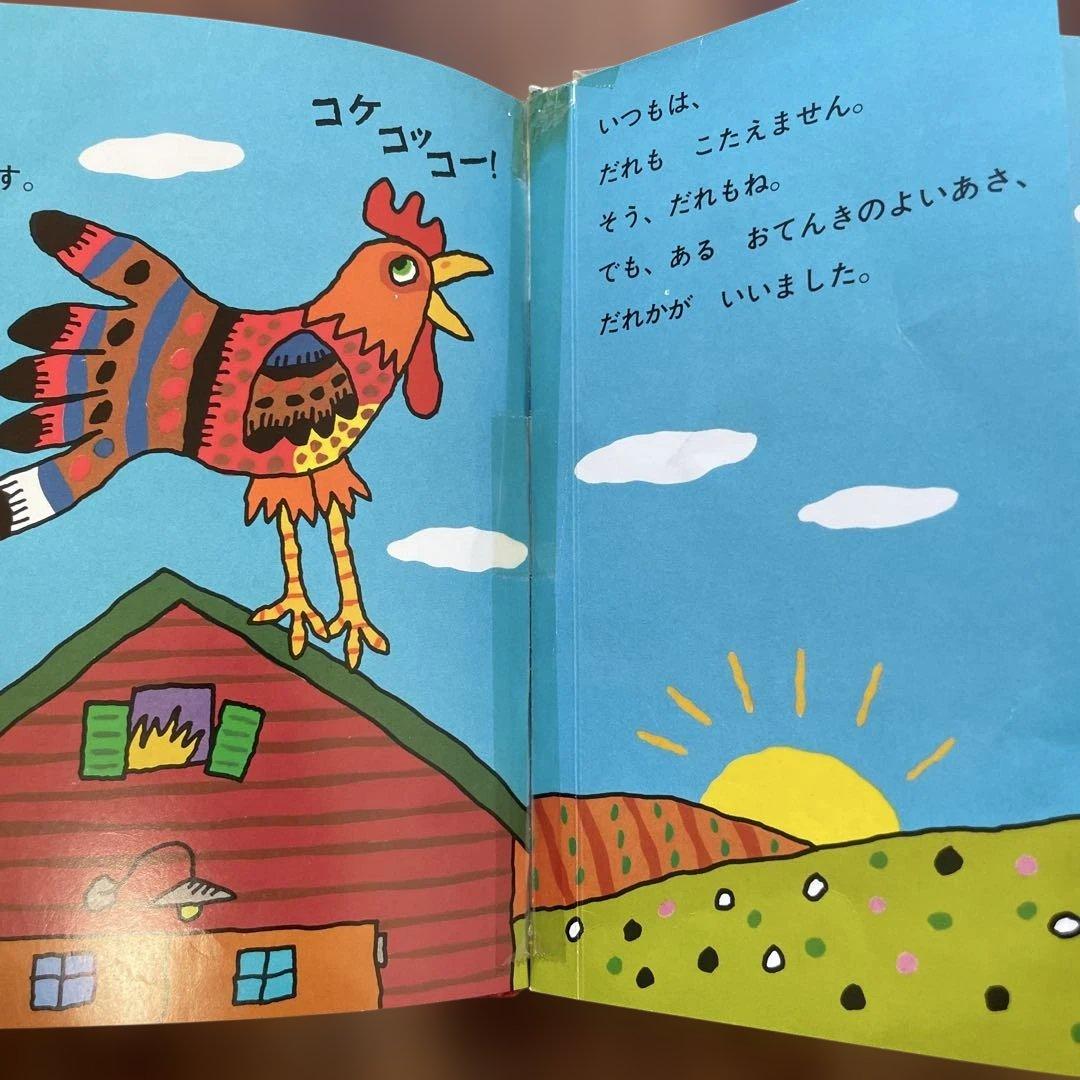 す。
コケ
コッ
コー!
いつもは、
だれも　こたえません。
そう、だれもね。
でも、ある　おてんきのよいあさ、
だれかが　いいました。